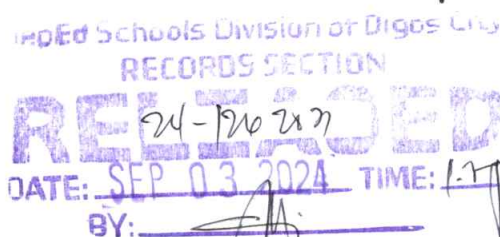 DepEd Schools Division of Digos City
RECORDS SECTION
RELEASED
DATE: SEP 03 2024 TIME:
BY: